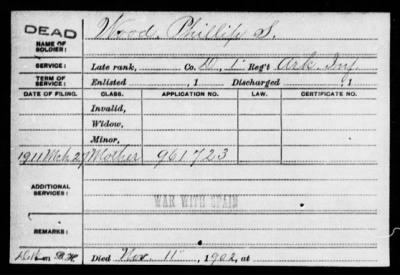 DEAD
NAME OF SOLDIER: Wood, Phillip S.
SERVICE: Late rank, Co. D, 1 Reg't Ark. Inf.
TERM OF SERVICE: Enlisted , 1 Discharged , 1
DATE OF FILING. CLASS. APPLICATION NO. LAW. CERTIFICATE NO.
Invalid,
Widow,
Minor,
1911 Mch 27 Mother 961723
ADDITIONAL SERVICES:
WAR WITH SPAIN
REMARKS:
Died Nov. 11, 1902, at